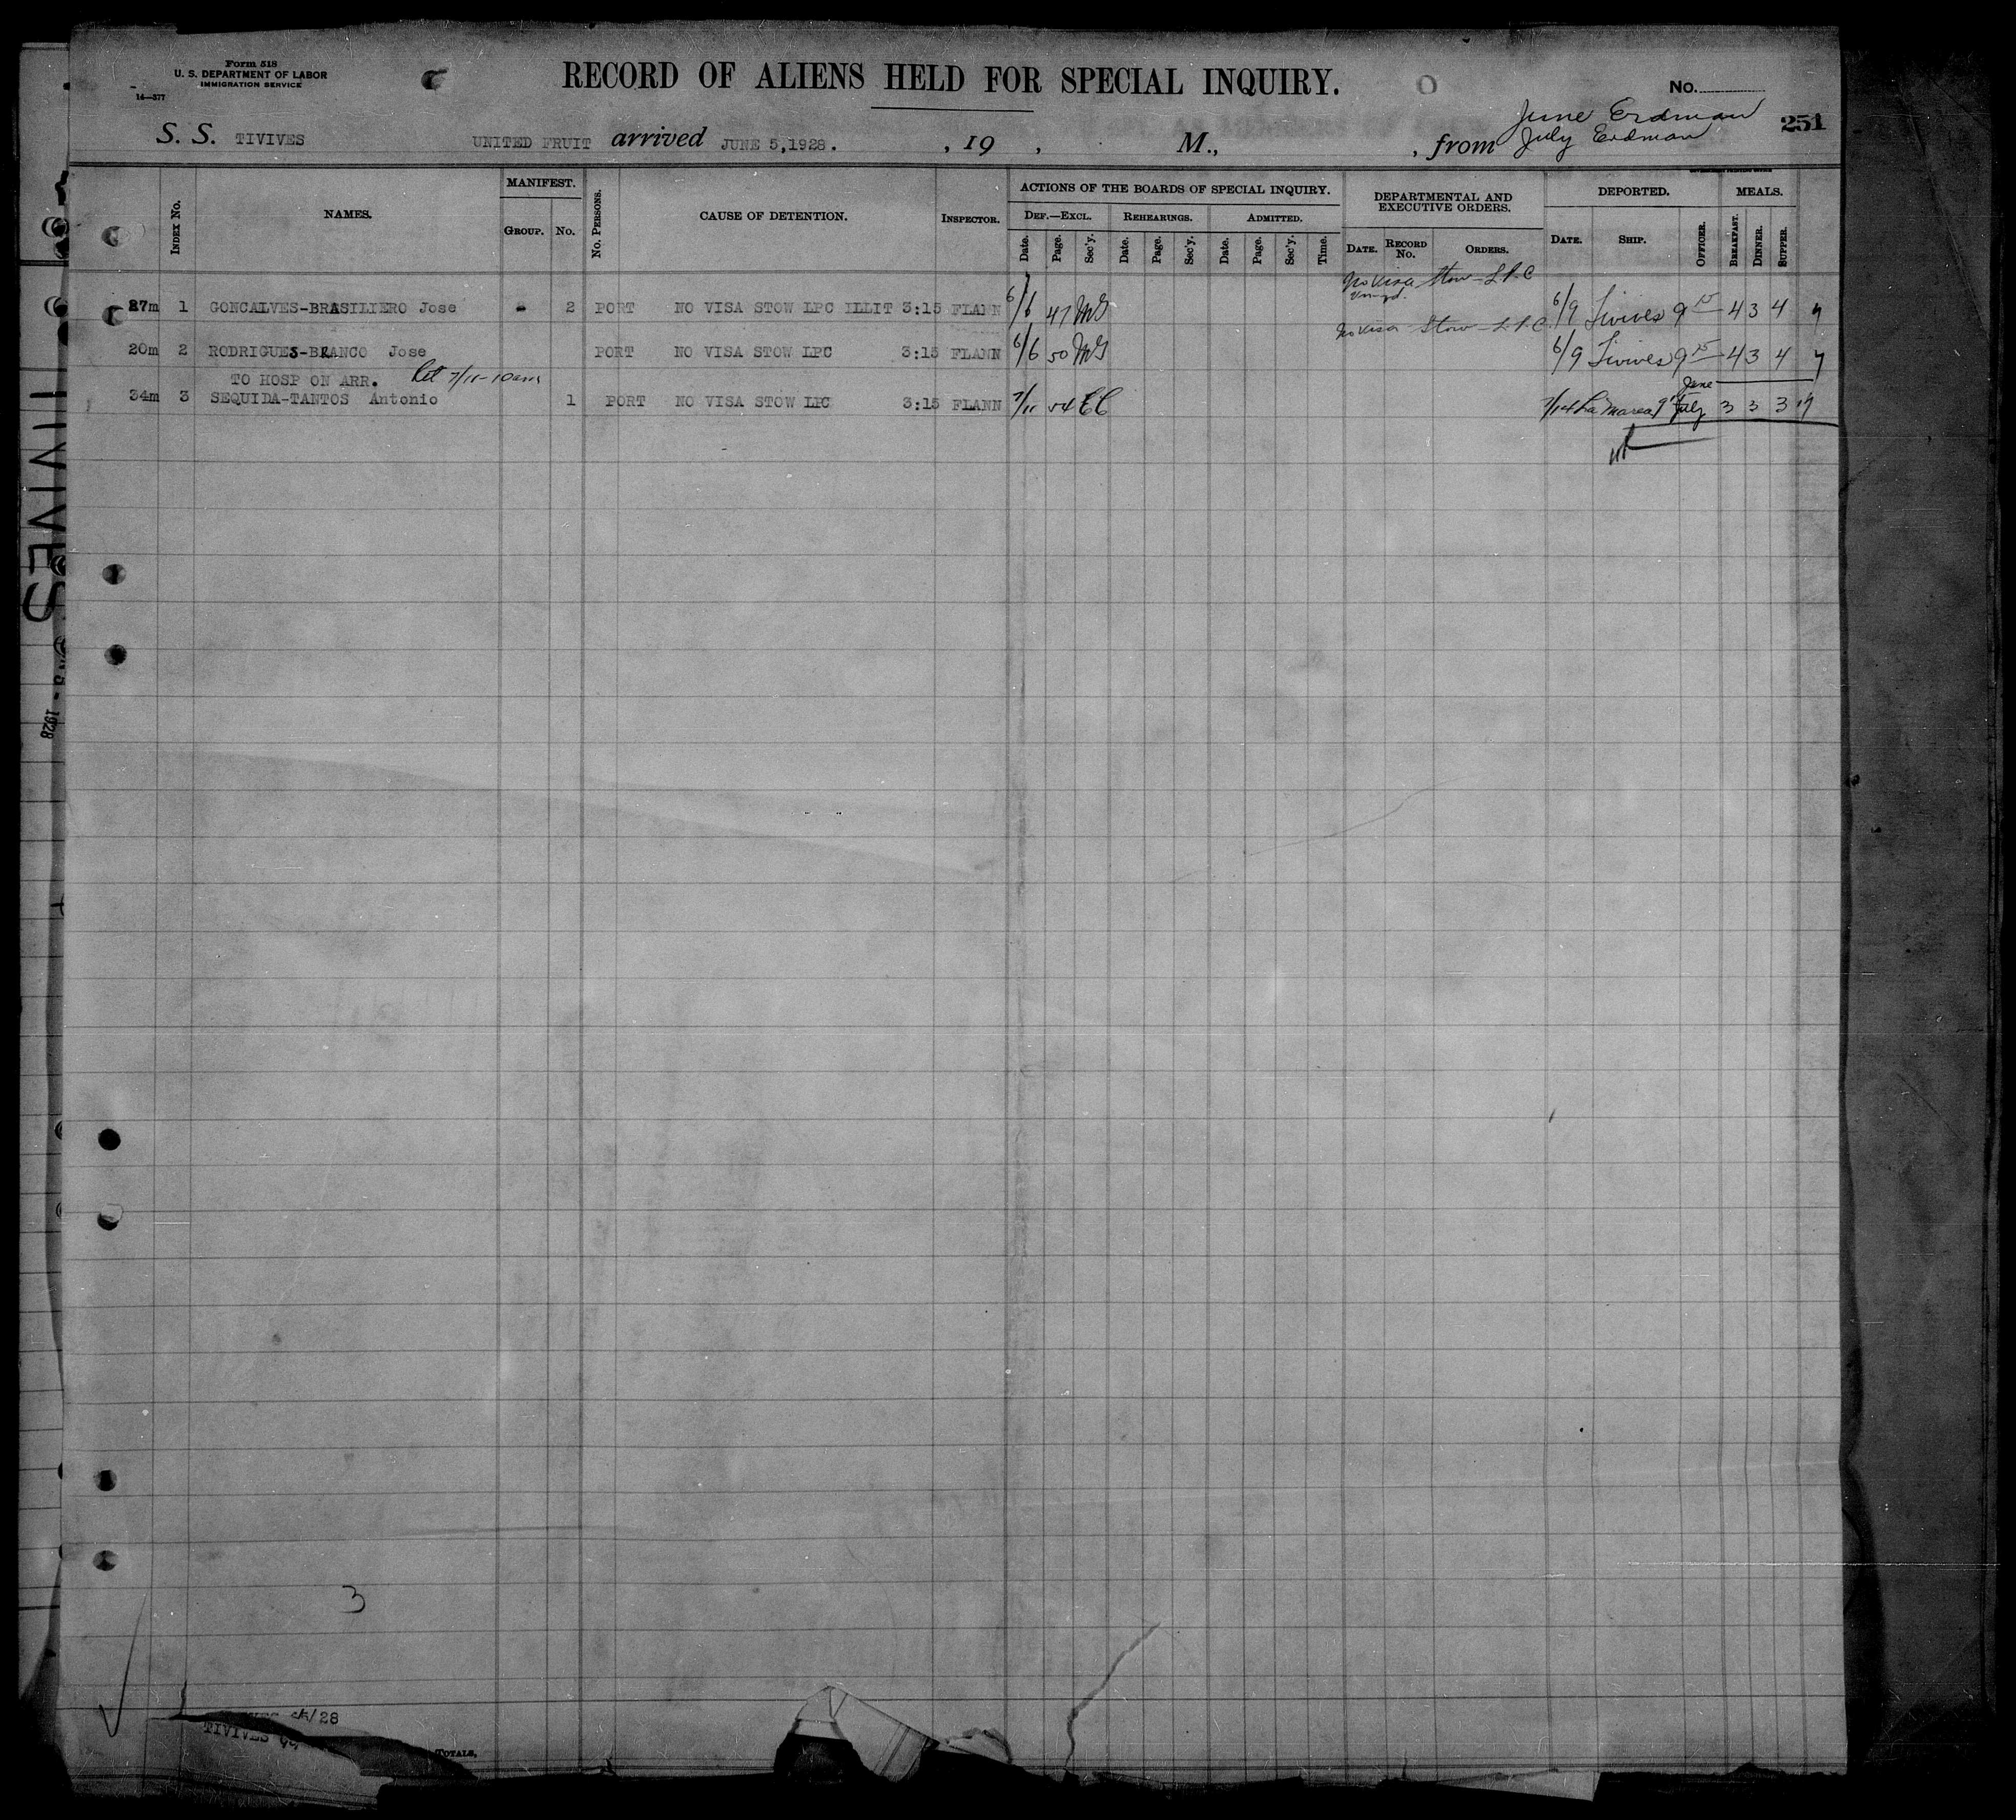 Form 518
U. S. DEPARTMENT OF LABOR
IMMIGRATION SERVICE
14—577
RECORD OF ALIENS HELD FOR SPECIAL INQUIRY.
No.
251
June Erdman
S. S. TIVIVES UNITED FRUIT arrived JUNE 5, 1928. , 19 , M., , from July Erdman
INDEX No. NAMES. MANIFEST. GROUP. No. No. PERSONS. CAUSE OF DETENTION. INSPECTOR. ACTIONS OF THE BOARDS OF SPECIAL INQUIRY. DEPARTMENTAL AND EXECUTIVE ORDERS. DEPORTED. MEALS.
DEF.—EXCL. REHEARINGS. ADMITTED.
Date. Page. Sec'y. Date. Page. Sec'y. Date. Page. Sec'y. Time. DATE. RECORD No. ORDERS. DATE. SHIP. OFFICER. BREAKFAST. DINNER. SUPPER.
No Visa Stow - L P C
27m 1 GONCALVES-BRASILIERO Jose 2 PORT NO VISA STOW LPC ILLIT 3:15 FLANN 6/6 47 MG 6/9 Tivives 9 15 4 3 4
No Visa Stow - L.P.C.
20m 2 RODRIGUES-BRANCO Jose PORT NO VISA STOW LPC 3:15 FLANN 6/6 50 MG 6/9 Tivives 9 15 4 3 4
TO HOSP ON ARR. 7/11-10am June
34m 3 SEQUIDA-TANTOS Antonio 1 PORT NO VISA STOW LPC 3:15 FLANN 7/11 54 EC 7/14 La Marea 9 July 3 3 3
TIVIVES
1928
3
/28
TIVIVES
TOTALS.